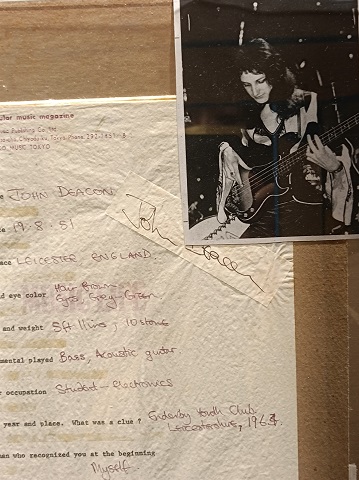 ular music magazine
Publishing Co. Ltd.
Tokyo. Phone 292-
O MUSIC TOKYO
e JOHN DEACON
John Deacon
te 19.8.51
ace LEICESTER ENGLAND.
d eye color Hair Brown -
Eyes, Grey-Green.
and weight 5ft 11ins, 10 stone
mental played Bass, Acoustic guitar
r occupation Student - electronics
year and place. What was a clue? Enderby Youth Club
Leicestershire, 1963.
an who recognized you at the beginning
Myself.